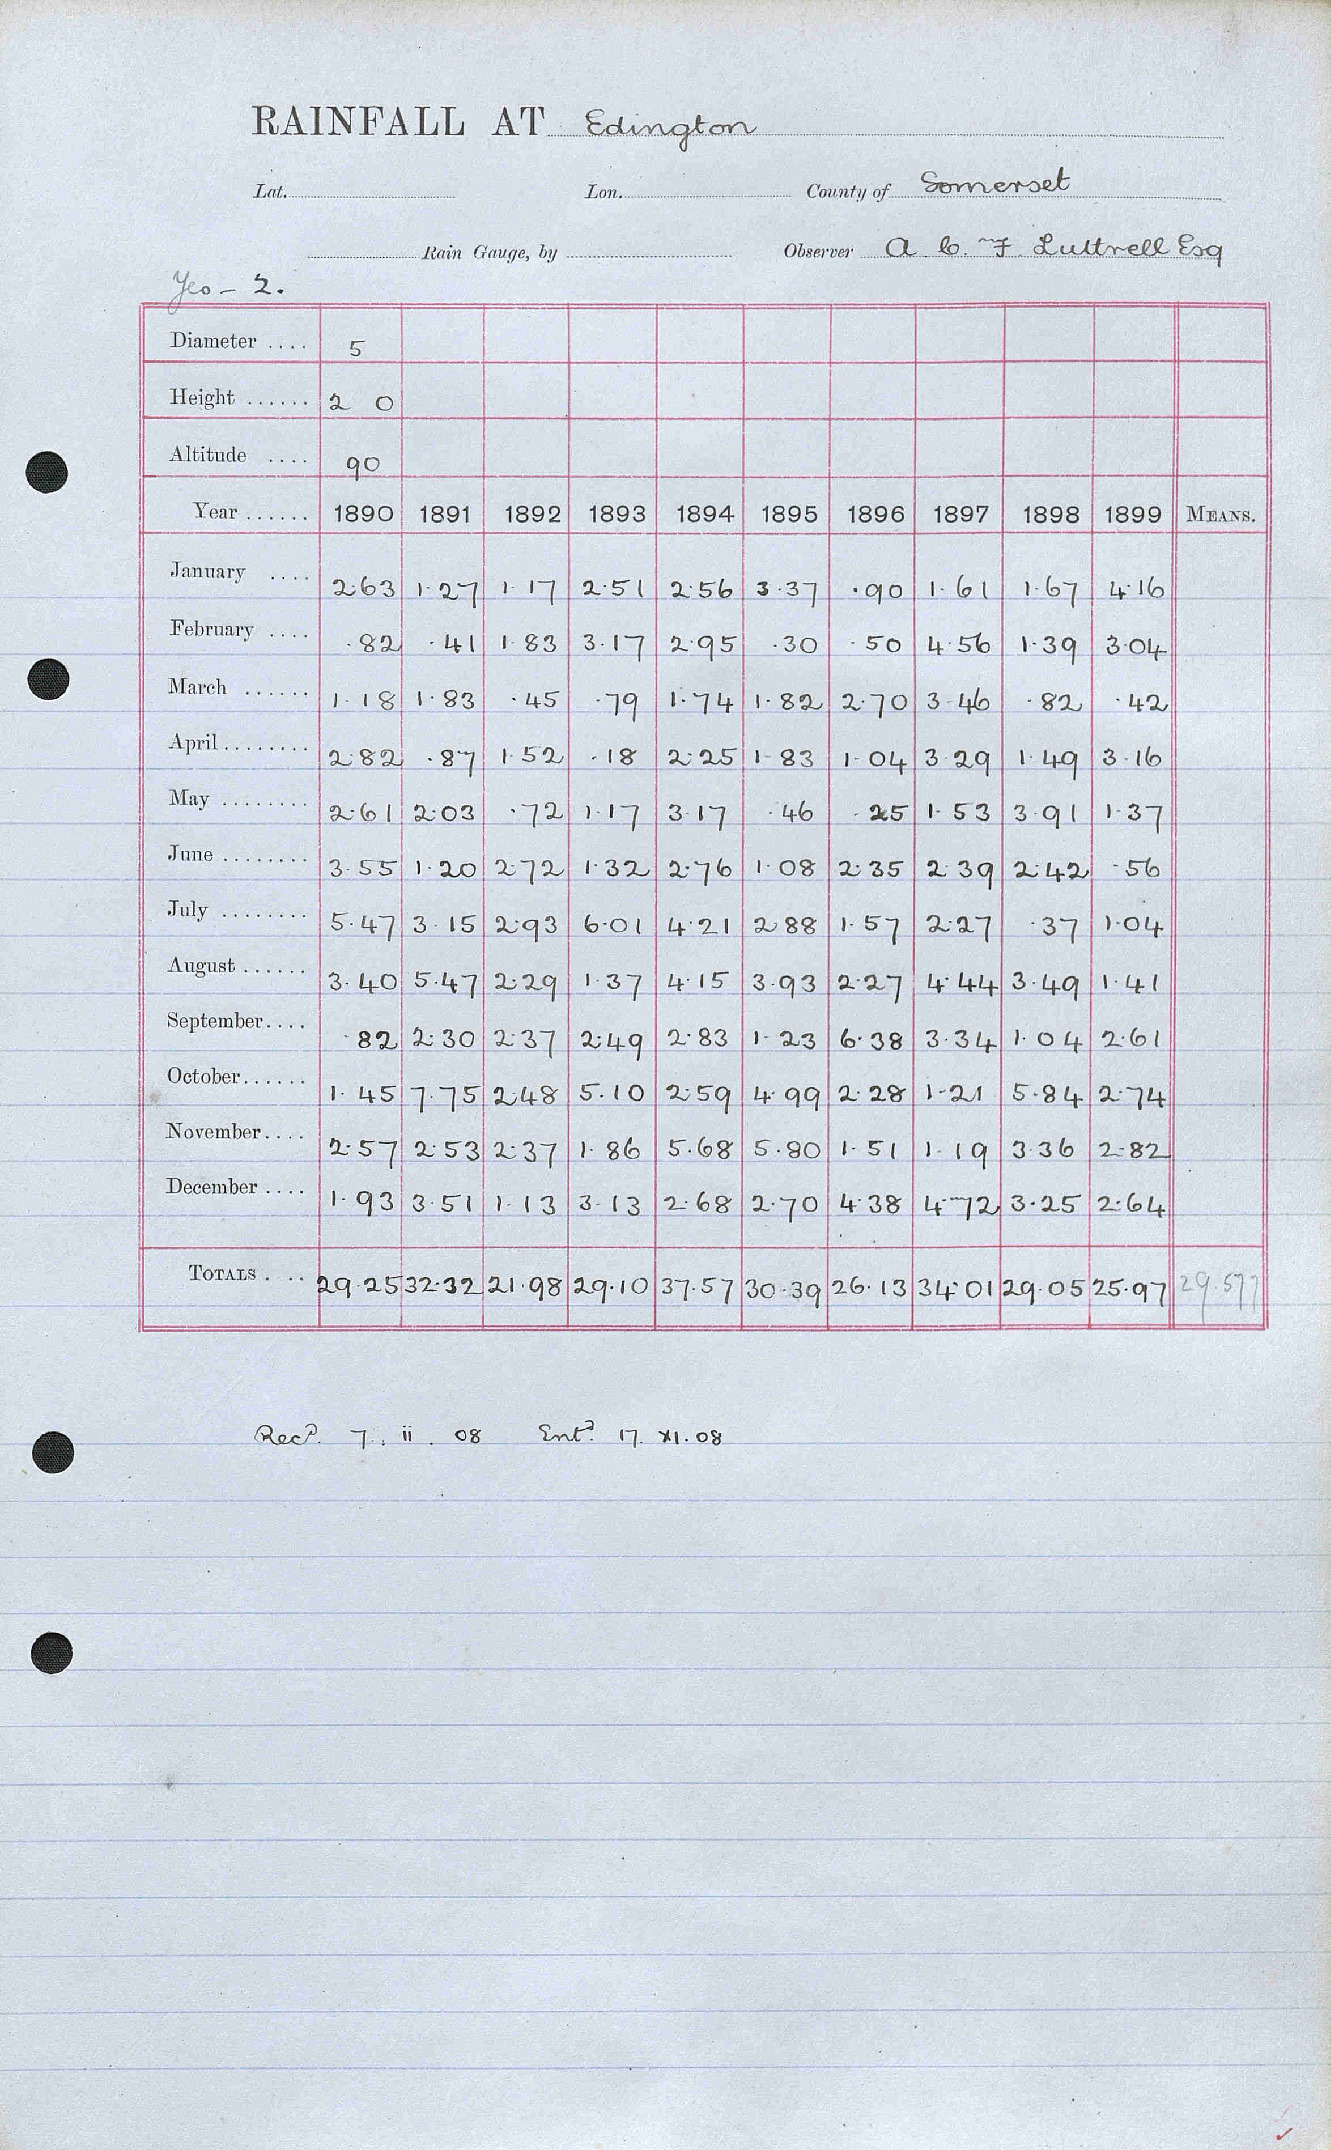 RAINFALL AT Edington
Lat. Lon. County of Somerset
Rain Gauge, by Observer A C F Luttrell Esq
Yeo - 2.
Diameter .... 5
Height ...... 2 0
Altitude .... 90
Year ...... 1890 1891 1892 1893 1894 1895 1896 1897 1898 1899 MEANS.
January .... 2.63 1.27 1.17 2.51 2.56 3.37 .90 1.61 1.67 4.16
February .... .82 .41 1.83 3.17 2.95 .30 .50 4.56 1.39 3.04
March ...... 1.18 1.83 .45 .79 1.74 1.82 2.70 3.46 .82 .42
April ........ 2.82 .87 1.52 .18 2.25 1.83 1.04 3.29 1.49 3.16
May ........ 2.61 2.03 .72 1.17 3.17 .46 .25 1.53 3.91 1.37
June ........ 3.55 1.20 2.72 1.32 2.76 1.08 2.35 2.39 2.42 .56
July ........ 5.47 3.15 2.93 6.01 4.21 2.88 1.57 2.27 .37 1.04
August ...... 3.40 5.47 2.29 1.37 4.15 3.93 2.27 4.44 3.49 1.41
September .... .82 2.30 2.37 2.49 2.83 1.23 6.38 3.34 1.04 2.61
October ...... 1.45 7.75 2.48 5.10 2.59 4.99 2.28 1.21 5.84 2.74
November .... 2.57 2.53 2.37 1.86 5.68 5.80 1.51 1.19 3.36 2.82
December .... 1.93 3.51 1.13 3.13 2.68 2.70 4.38 4.72 3.25 2.64
TOTALS .... 29.25 32.32 21.98 29.10 37.57 30.39 26.13 34.01 29.05 25.97 29.577
Recd. 7. ii. 08 Entd. 17. XI. 08